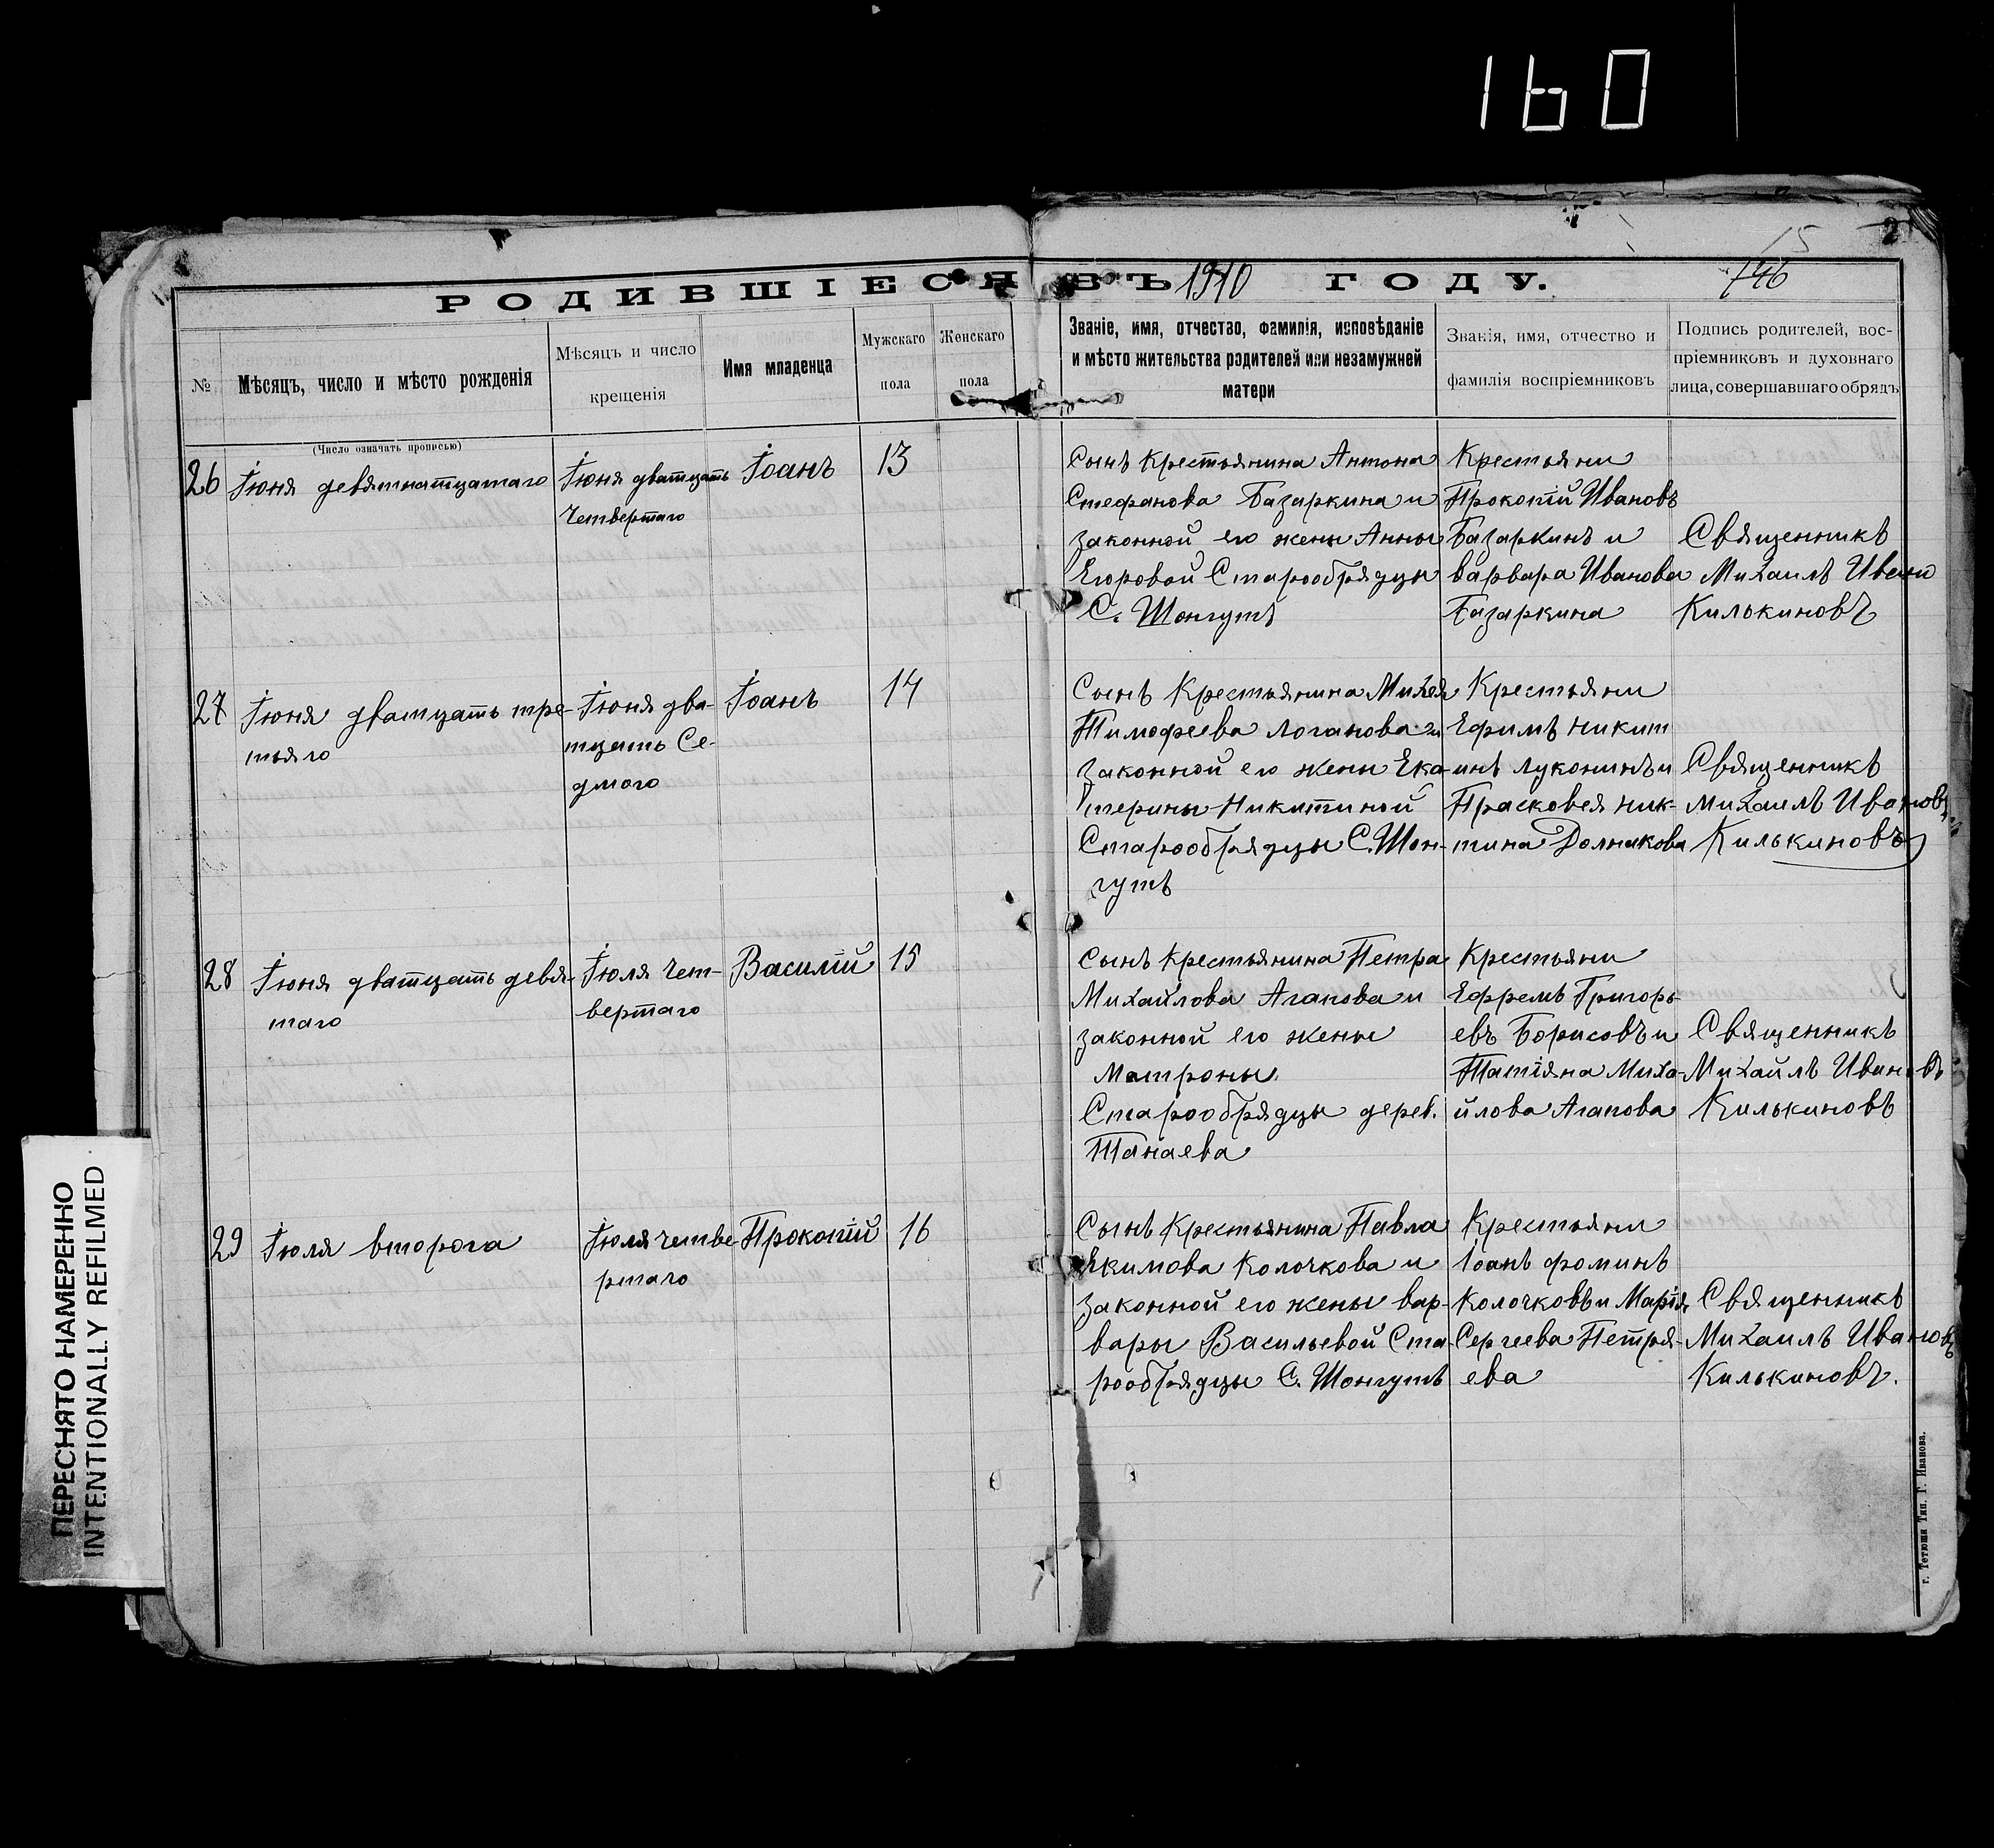 160
2
15
146
РОДИВШІЕСЯ ВЪ 1910 ГОДУ.
№
Мѣсяцъ, число и мѣсто рожденія
Мѣсяцъ и число
крещенія
Имя младенца
Мужскаго
пола
Женскаго
пола
Званіе, имя, отчество, фамилія, исповѣданіе
и мѣсто жительства родителей или незамужней
матери
Званія, имя, отчество и
фамилія воспріемниковъ
Подпись родителей, вос-
пріемниковъ и духовнаго
лица, совершавшаго обрядъ
(Число означать прописью)
26
Іюня девятнатцатаго
Іюня дватцать
Четвертаго
Іоанъ
13
Сынъ Крестьянина Антона
Стефанова Базаркина и
законной его жены Анны
Егоровой Старообрядцы
С. Шонгутѣ
Крестьяни
Прокопій Ивановъ
Базаркинъ и
варвара Иванова
Базаркина
Священникъ
Михаилъ Ивано
Килькиновъ
27
Іюня дватцать тре-
тьяго
Іюня два-
тцать Се-
дмого
Іоанъ
14
Сынъ Крестьянина Михея
Тимофеева Логанова и
законной его жены Ека-
терины Никитиной
Старообрядцы С. Шон-
гутѣ
Крестьяни
Ефимъ никит
инъ луконинъ и
Прасковея ник-
тина Долникова
Священникъ
Михаилъ Ивановъ
Килькиновъ
28
Іюня дватцать девя-
таго
Іюля Чет-
вертаго
Василій
15
Сынъ Крестьянина Петра
Михайлова Агапова и
законной его жены
Матроны
Старообрядцы дерев.
Танаева
Крестьяни
Ефремъ Григорь-
евъ Борисовъ и
Татіяна Миха-
йлова Агапова
Священникъ
Михайлъ Ивановъ
Килькиновъ
29
Іюля второга
Іюля четве-
ртаго
Прокопій
16
Сынъ Крестьянина Павла
Екимова Колочкова и
законной его жены вар-
вары Васильевой Ста-
рообрядцы С. Шонгутѣ
Крестьяни
Іоанъ фоминъ
Колочковъ и Марія
Сергеева Петря-
ева
Священникъ
Михаилъ Ивановъ
Килькиновъ.
ПЕРЕСНЯТО НАМЕРЕННО
INTENTIONALLY REFILMED
г. Тетюши Тип. Г. Иванова.